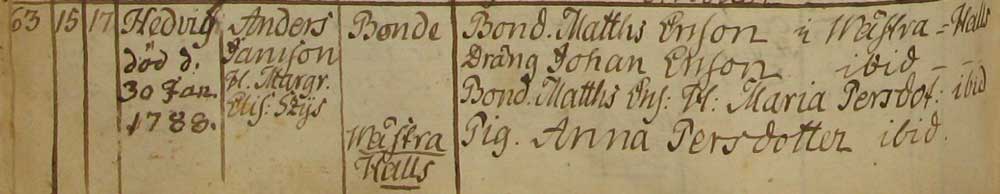 63 15 17 Hedvig
död d.
30 Jan.
1788.
Anders
Janson
H. Margr.
Elis: Stijs
Bonde
Wästra
Halls
Bond. Matths Erson i Wästra-Halls
Dräng Johan Erson ibid
Bond. Matths Ers: H: Maria Persdot: ibid
Pig. Anna Persdotter ibid.